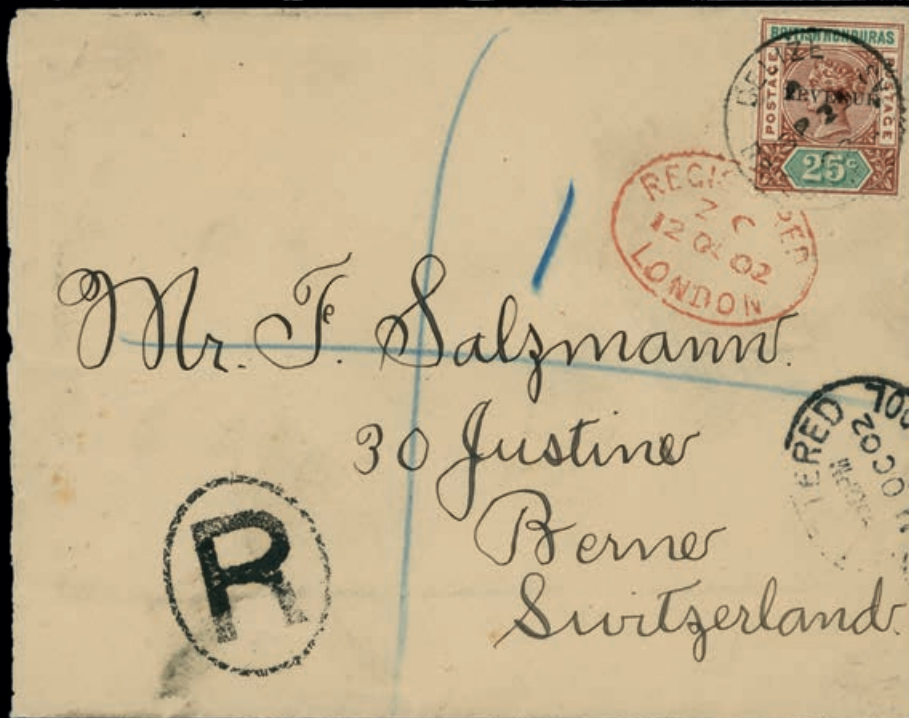 BRITISH HONDURAS
POSTAGE
POSTAGE
REVENUE
25c
BELIZE
LONDON
12 OC 02
Mr. F. Salzmann.
30 Justine
Berne
Switzerland.
R
TERED
OOL
OC 02